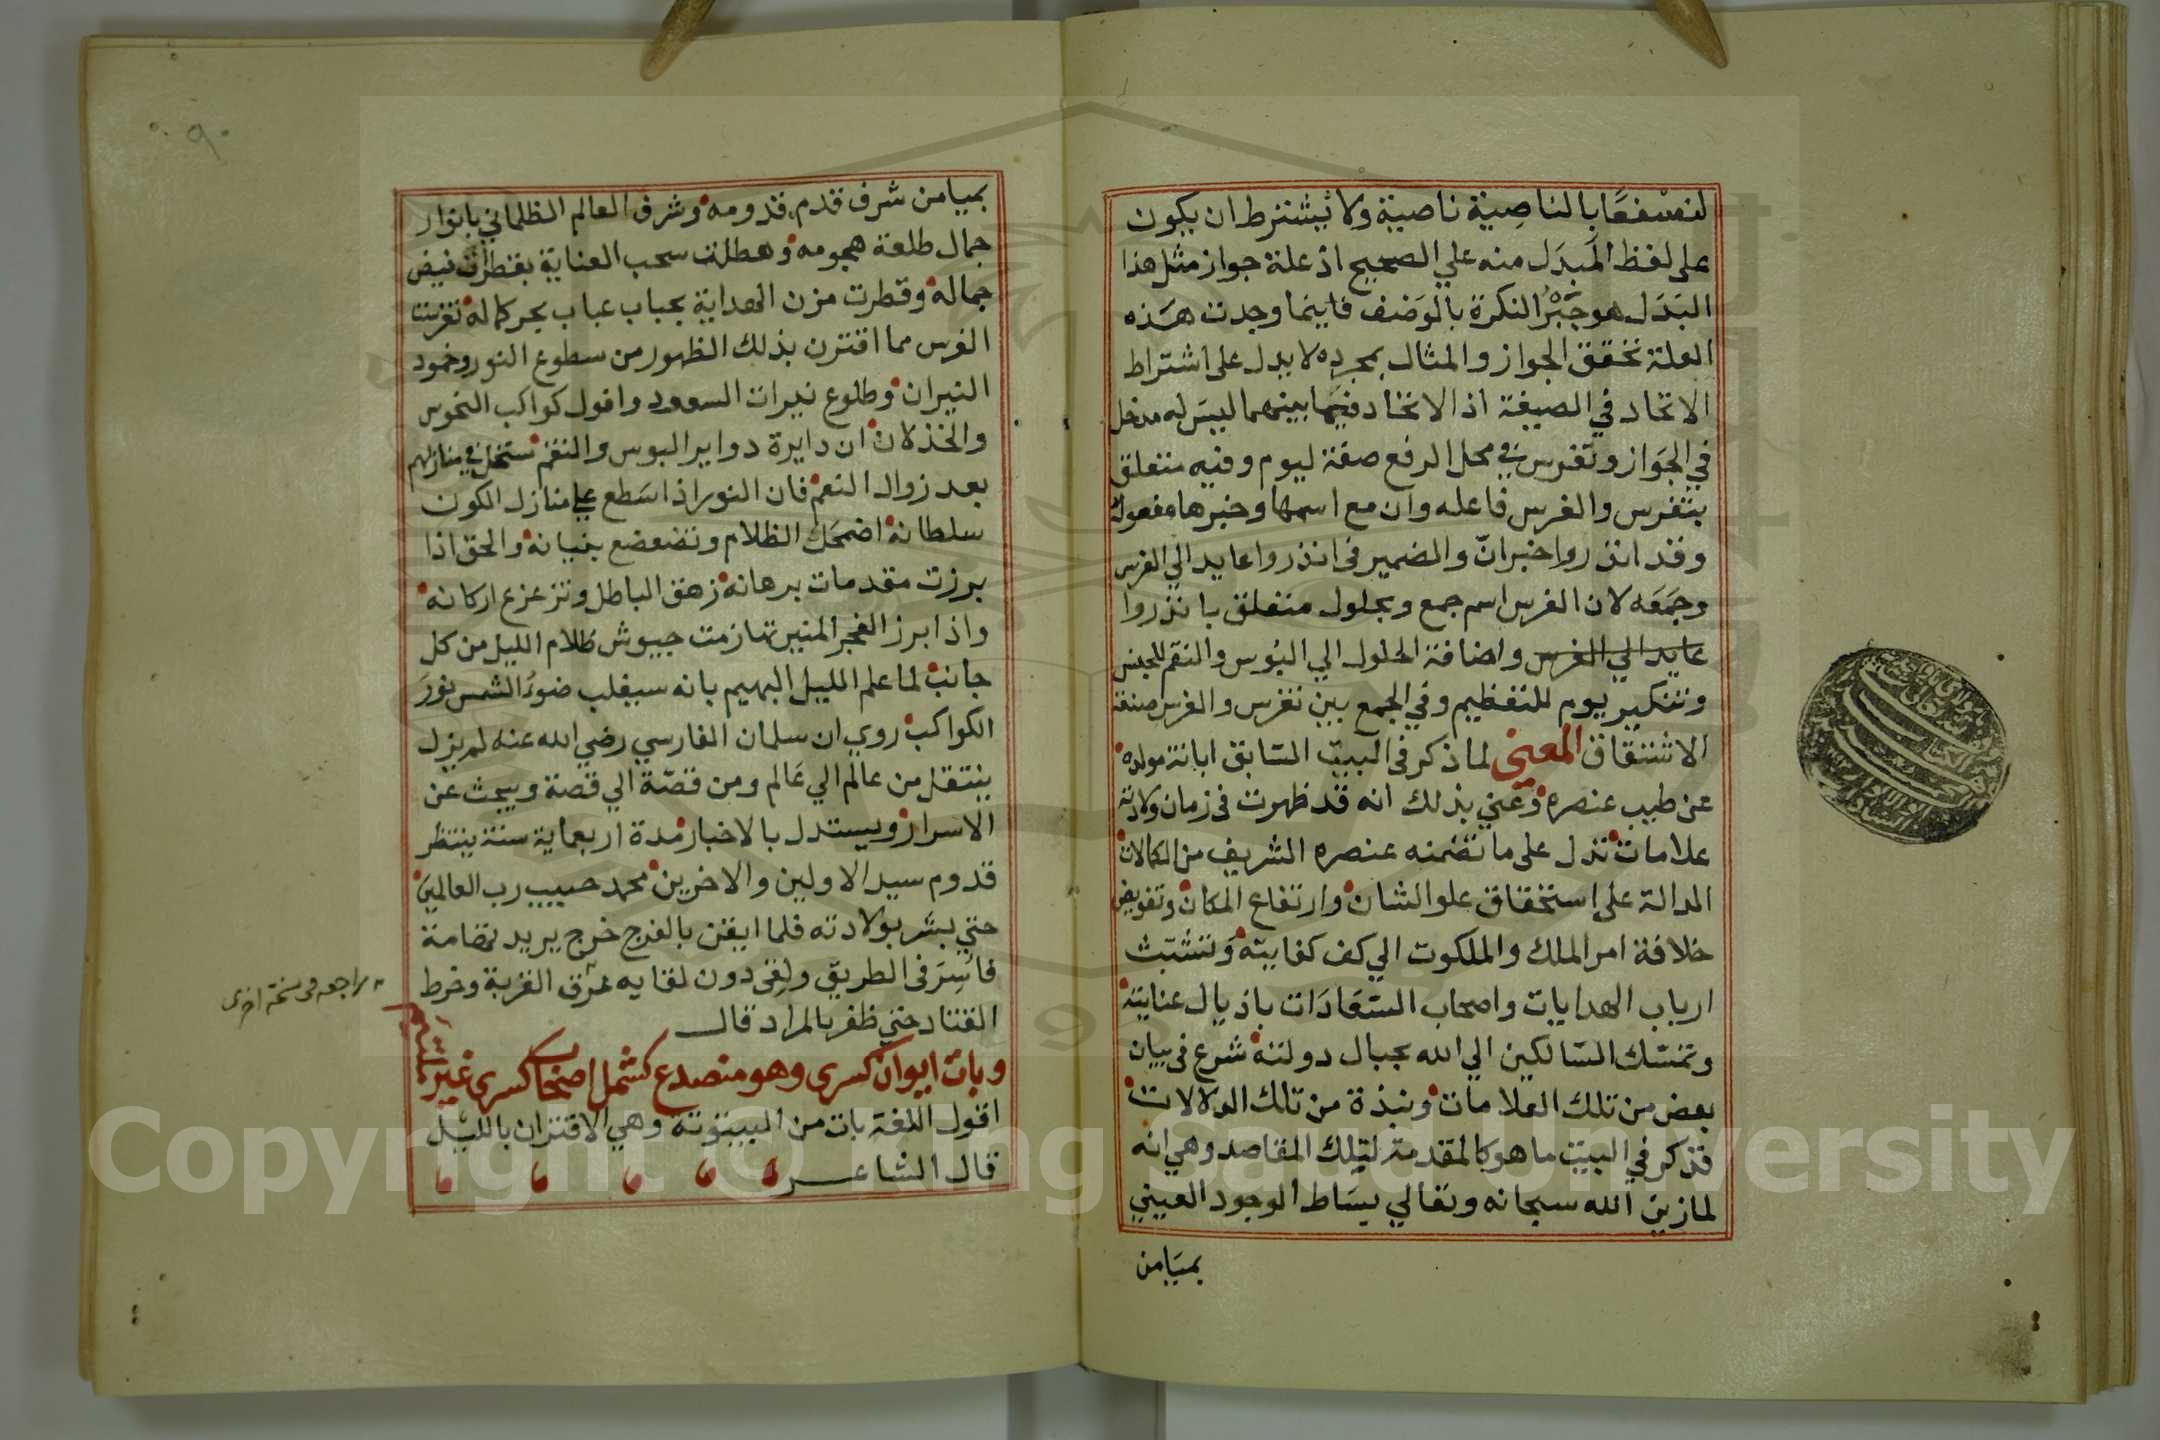 لنسفعًا بالناصية ناصية ولا يشترط ان يكون
على لفظ المبدَل منه علي الصحيح اذ علة جواز مثل هذا
البَدَل هو جَبْرُ النكرة بالوَصف فاينما وجدت هَذه
العلة تحقق الجواز والمثال بمجرده لا يدل على اشتراط
الاتحاد في الصيغة اذ الاتحاد فيما بينهما ليسَ له مدخل
في الجَواز وتفرس في محل الرفع صفة ليوم وفيه متعلق
بتفرس والفرس فاعله وان مع اسمها وخبرها مفعوله
وقد انذروا خبر انّ والضمير في انذروا عايد الي الفرس
وجمَعَه لان الفرس اسم جمع وبحلول متعلق بانذروا
عايد الي الفرس واضافة الحلول الي البُوس والنقم للجنس
وتنكير يوم للتعظيم وفي الجمع بين تفرس والفرس صنعة
الاشتقاق المعنى لما ذكر في البيت السَابق ابانة مولده
عن طيب عنصره وعني بذلك انه قد ظهرت في زمان ولادته
علامات تدل على ما تضمنه عنصره الشريف من الكمالات
الدالة على استحقاق علو الشان وارتفاع المكان وتفويض
خلافة امر الملك والملكوت الي كف كفايته وَتشبّث
ارباب الهدايات واصحاب السَعَادَات باذيال عنايته
وتمسّك السَالكين الي الله بحبال دولته شرع في بيان
بعض من تلك العلامات ونبذة من تلك الدلالات
فذكر في البيت ما هو كالمقدمة لتِلك المقاصد وهي انه
لما زين الله سبحانه وتعالي بسَاط الوجود العيني
بميَامن
٩٠
بميامن شرف قدم قدومه وشرف العالم الظلماني بانوار
جمال طلعة هجومه وهطلت سحب العناية بقطرات فيض
جماله وقطرت مزن الهداية بحباب عباب بحر كماله تفرست
الفرس مما اقترن بذلك الظهور من سطوع النور وخمود
النيران وطلوع نيرات السعود وافول كواكب النحوس
والخذلان ان دايرة دواير البوس والنقم ستحل في منازلهم
بعد زوال النعم فان النور اذا سَطع علي منازل الكون
سلطانه اضمحَك الظلام وتضعضع بنيانه والحق اذا
برزت مقدمات برهانه زهق الباطل وتزعزع اركانه
واذا برز الفجر المنير تهازمت جيوش ظلام الليل من كل
جانب لما علم الليل البهيم بانه سيغلب ضوءُ الشمس نورَ
الكواكب روي ان سلمان الفارسي رضي الله عنه لم يزل
ينتقل من عالَم الي عَالم ومن قصّة الي قصة ويبحث عن
الاسرار ويستدل بالاخبار مدة اربعماية سنة ينتظر
قدوم سيد الاولين والاخرين محمد حبيب رب العالمينَ
حتي بشّر بولادته فلما ايقن بالفرج خرج يريد تهامة
فاُسِرَ في الطريق ولقي دون لقايه عرَق القربة وخرط
القتاد حتي ظفر بالمراد قال
وبات ايوان كسرى وهو منصدع كشمل اصحاب كسرى غير ملتئم
اقول اللغة بات من البيتوتة وهي الاقتران بالليْل
قال الشاعر
يراجعه في نسخة اخرى
Copyright © King Saud University